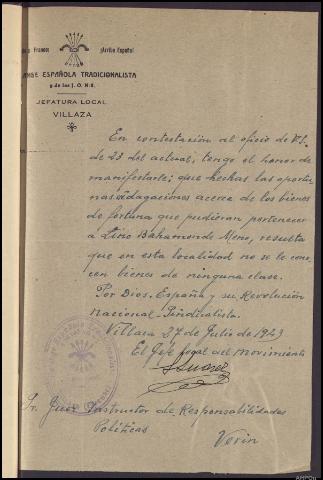 Franco! ¡Arriba España!
ESPAÑOLA TRADICIONALISTA
y de las J. O. N. S.
JEFATURA LOCAL
VILLAZA
En contestación al oficio de V.S.
de 23 del actual, tengo el honor de
manifestarle; que hechas las oportu-
nas indagaciones acerca de los bienes
de fortuna que pudieran pertenecer
a Lino Bahamonde Meno, resulta
que en esta localidad no se le cono-
cen bienes de ninguna clase.
Por Dios, España y su Revolución
Nacional Sindicalista.
Villaza 27 de Julio de 1943
El Jefe local del Movimiento
Suarez
Sr. Juez Instructor de Responsabilidades
Políticas
Verin
AHPOu